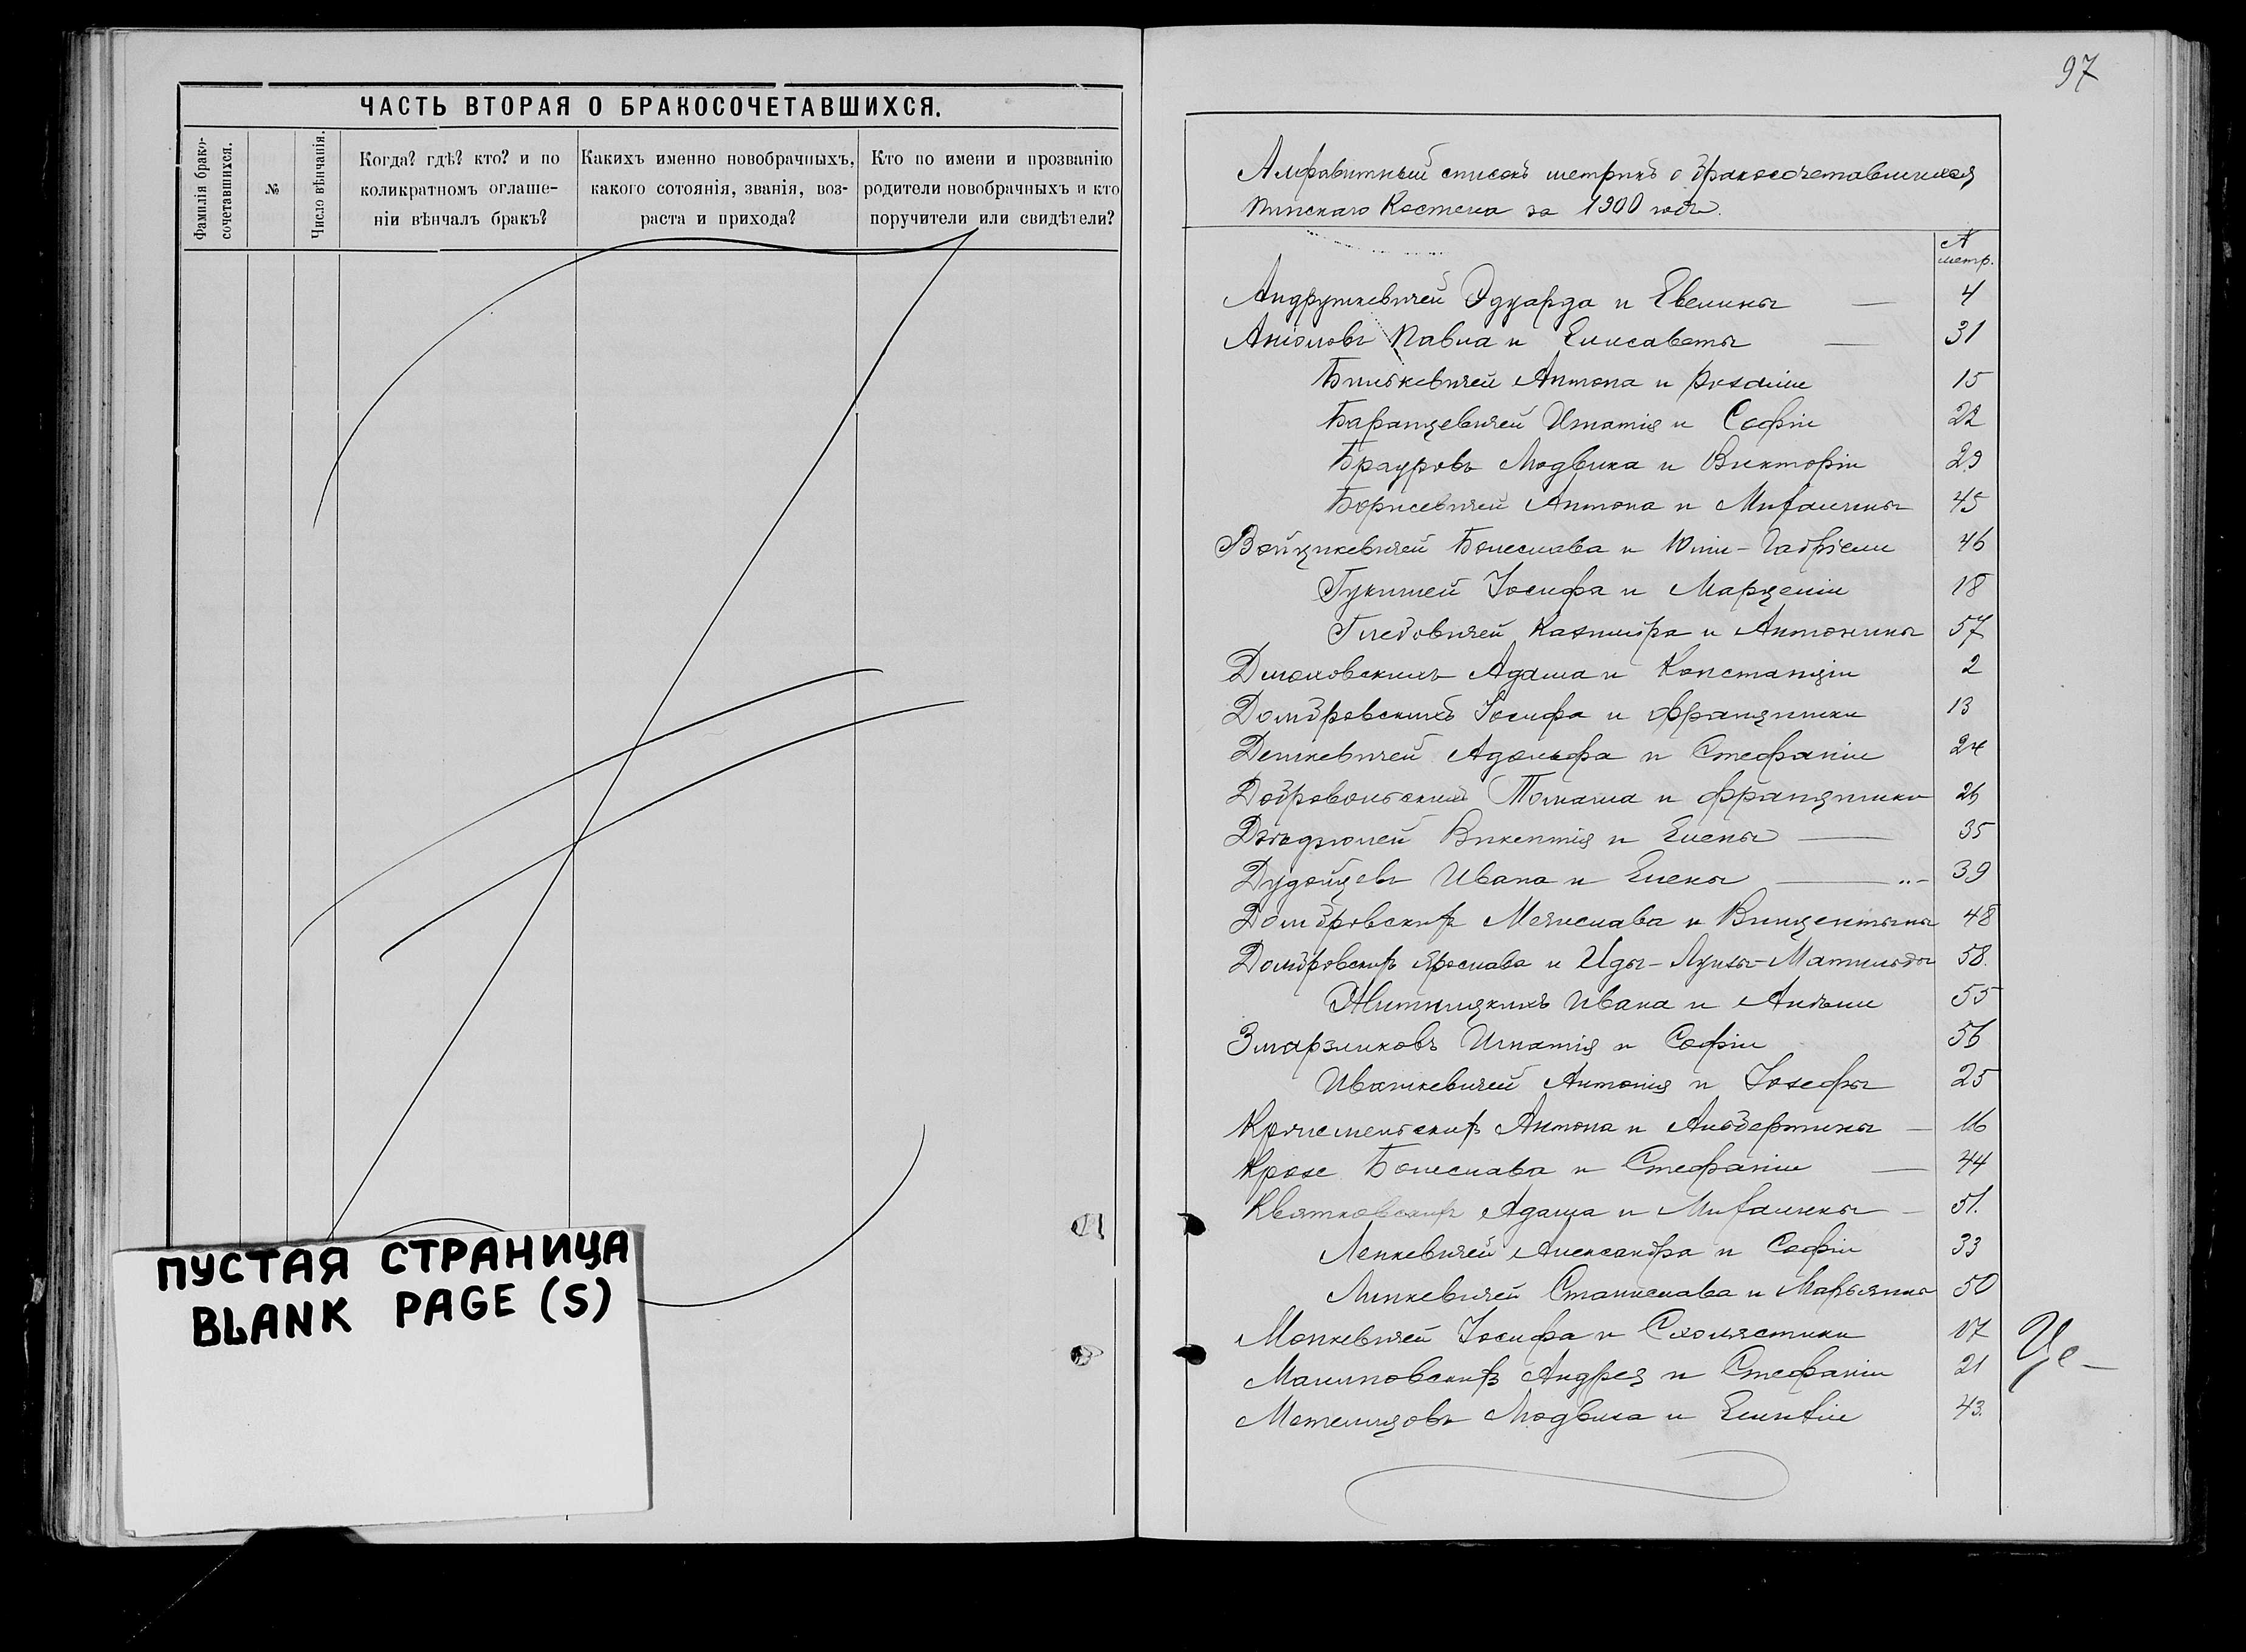 ЧАСТЬ ВТОРАЯ О БРАКОСОЧЕТАВШИХСЯ.
Фамилія брако-
сочетавшихся.
№
Число вѣнчанія.
Когда? гдѣ? кто? и по
коликратномъ оглаше-
ніи вѣнчалъ бракъ?
Какихъ именно новобрачныхъ,
какого сотоянія, званія, воз-
раста и прихода?
Кто по имени и прозванію
родители новобрачныхъ и кто
поручители или свидѣтели?
ПУСТАЯ СТРАНИЦА
BLANK PAGE (S)
97
Алфавитный списокъ метрикъ о бракосочетавшихся
Пинскаго Костела за 1900 годъ.
№
метр.
Андрушкевичей Эдуарда и Евелины — 4
Аніоловъ Павла и Елисаветы — 31
Бинкевичей Антона и Розаліи 15
Баранцевичей Игнатія и Софіи 22
Брауровъ Людвика и Викторіи 29
Борисевичей Антона и Михалины 45
Войцикевичей Болеслава и Юліи-Габріели 46
Гукишей Іосифа и Марцеліи 18
Глебовичей Казиміра и Антонины 57
Дмоховскихъ Адама и Констанціи 2
Домбровскихъ Іосифа и Францишки 13
Дешкевичей Адольфа и Стефаніи 24
Добровольскихъ Томаша и Францишки 26
Викентія и Елены — 35
Дудойцевъ Ивана и Елены — 39
Домбровскихъ Мечислава и Винцентыны 48
Домбровскихъ Ярослава и Иды-Луизы-Матильды 58.
Житницкихъ Ивана и Анели 55
Змарзликовъ Игнатія и Софіи 56
Ивашкевичей Антонія и Іозефы 25
Антона и Альбертины — 16
Крозе Болеслава и Стефаніи — 44
Квятковскихъ Адама и Михалины — 51.
Ленкевичей Александра и Софіи 33
Линкевичей Станислава и Марьянны 50
Монкевичей Іосифа и Схолястики 17
Малиновскихъ Андрея и Стефаніи 21
Метелицовъ Людвика и Емиліи 43.